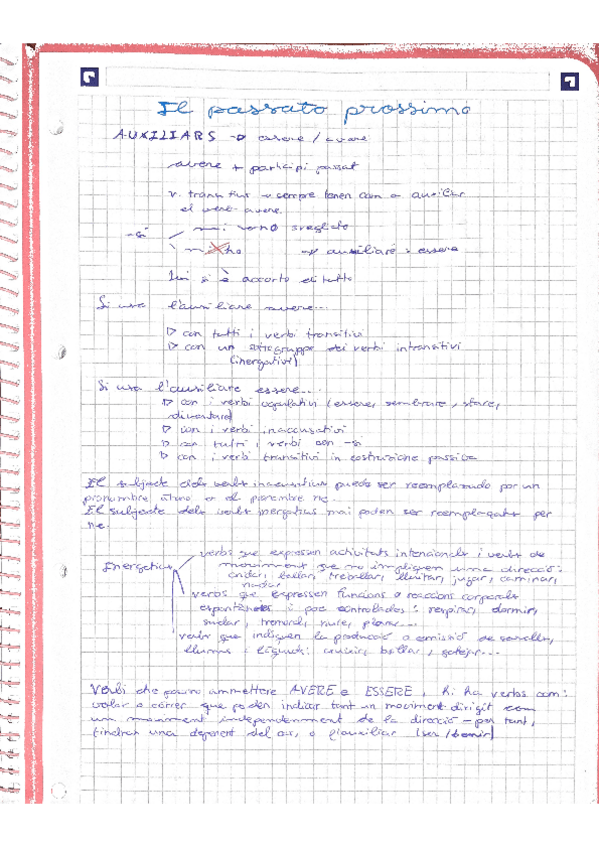 Il passato prossimo
AUXILIARS → essere / avere
avere + participi passat
v. transitius → sempre tenen com a auxiliar
el verb avere.
-si mi sono svegliato
mi ho → auxiliare: essere
Lui si è accorto di tutto
Si usa l'auxiliare avere...
▷ con tutti i verbi transitivi
▷ con un sottogruppo dei verbi intransitivi
(inergativi)
Si usa l'auxiliare essere...
▷ con i verbi copulativi (essere, sembrare, stare,
diventare)
▷ con i verbi inaccusativi
▷ con tutti i verbi con -si
▷ con i verbi transitivi in costruzione passiva
El subjecte dels verbs inacusatius puede ser reemplazado por un
pronombre átono o el pronombre ne.
El subjecte dels verbs inergatius mai poden ser reemplaçats per
ne.
Energetius verbs que expressen activitats intencionals i verbs de
moviment que no impliquen una direcció:
cridar, ballar, treballar, lluitar, jugar, caminar,
nadar
verbs que expressen funcions o reaccions corporals
espontànies i poc controlades: respirar, dormir,
sudar, tremolar, riure, plorar...
verbs que indiquen la producció o emissió de sorolls,
llums i líquids: cruixir, brillar, gotejar...
Verbi che possono ammettere AVERE e ESSERE, hi ha verbs com:
volar o córrer que poden indicar tant un moviment dirigit com
un moviment independentment de la direcció - per tant,
tindran una depenent del cas, o l'auxiliar (ser/tenir)